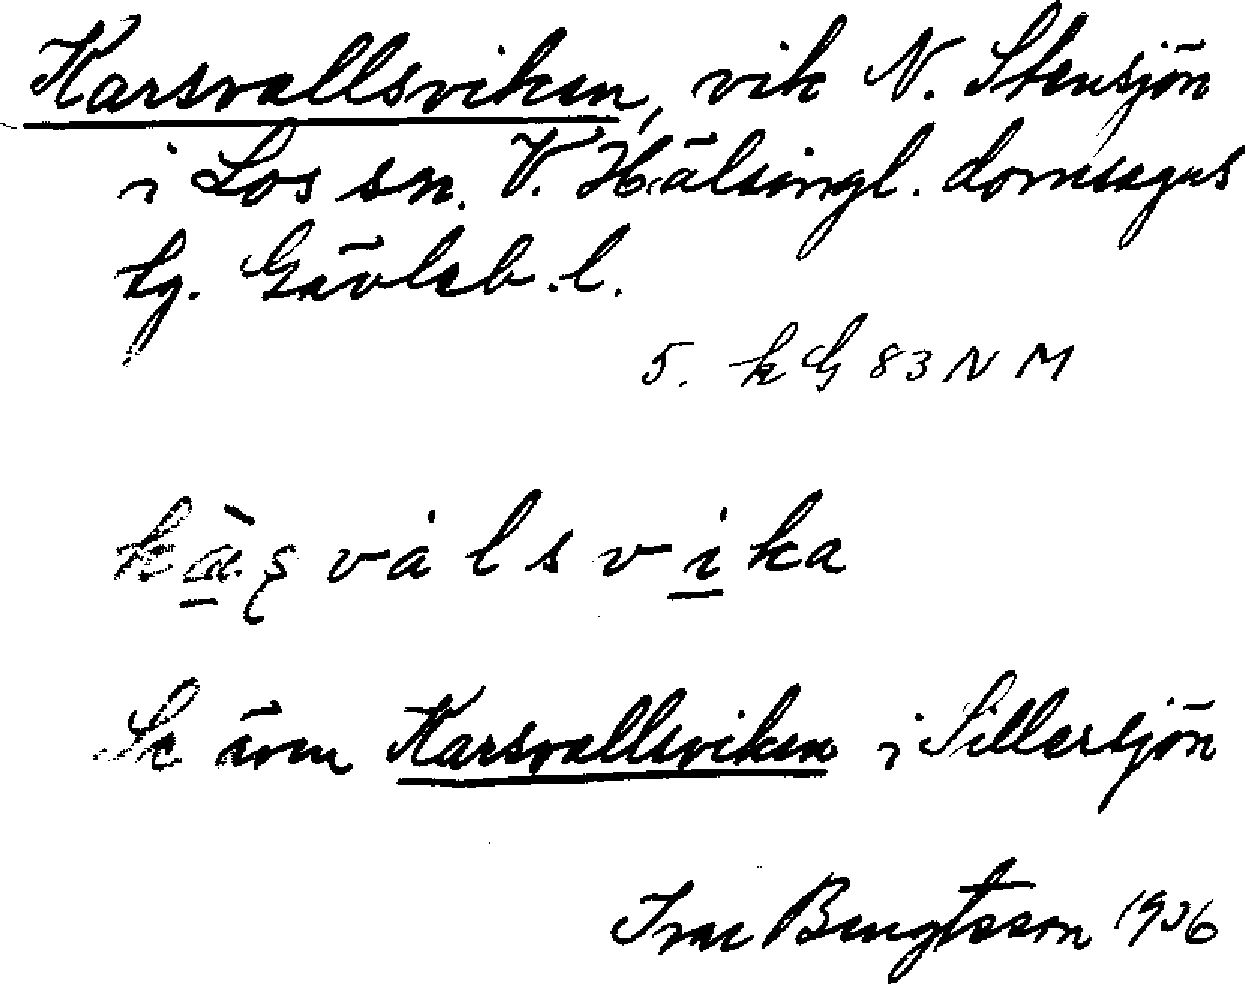 Karsvallsviken, vik N. Stensjön
i Los sn. V. Hälsingl. domsagas
tg. Gävleb. l.
5. kG 83 NM
vålsvika
Se även Karsvallsviken i Sillersjön
Bengtsson 1936